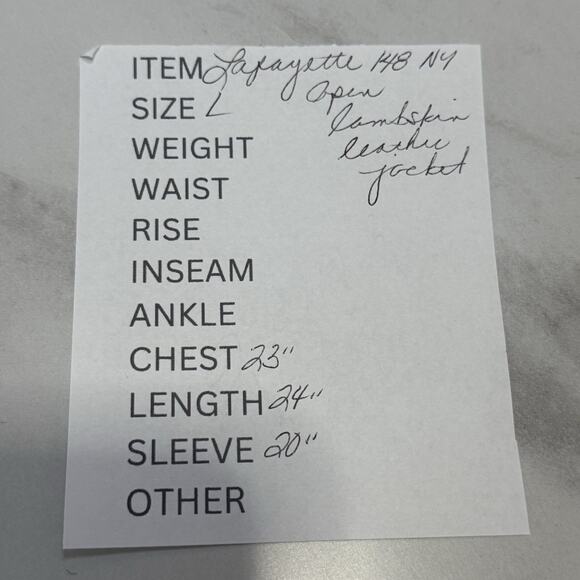 ITEM Lafayette 148 NY
SIZE L open
lambskin
WEIGHT leather
jacket
WAIST
RISE
INSEAM
ANKLE
CHEST 23"
LENGTH 24"
SLEEVE 20"
OTHER